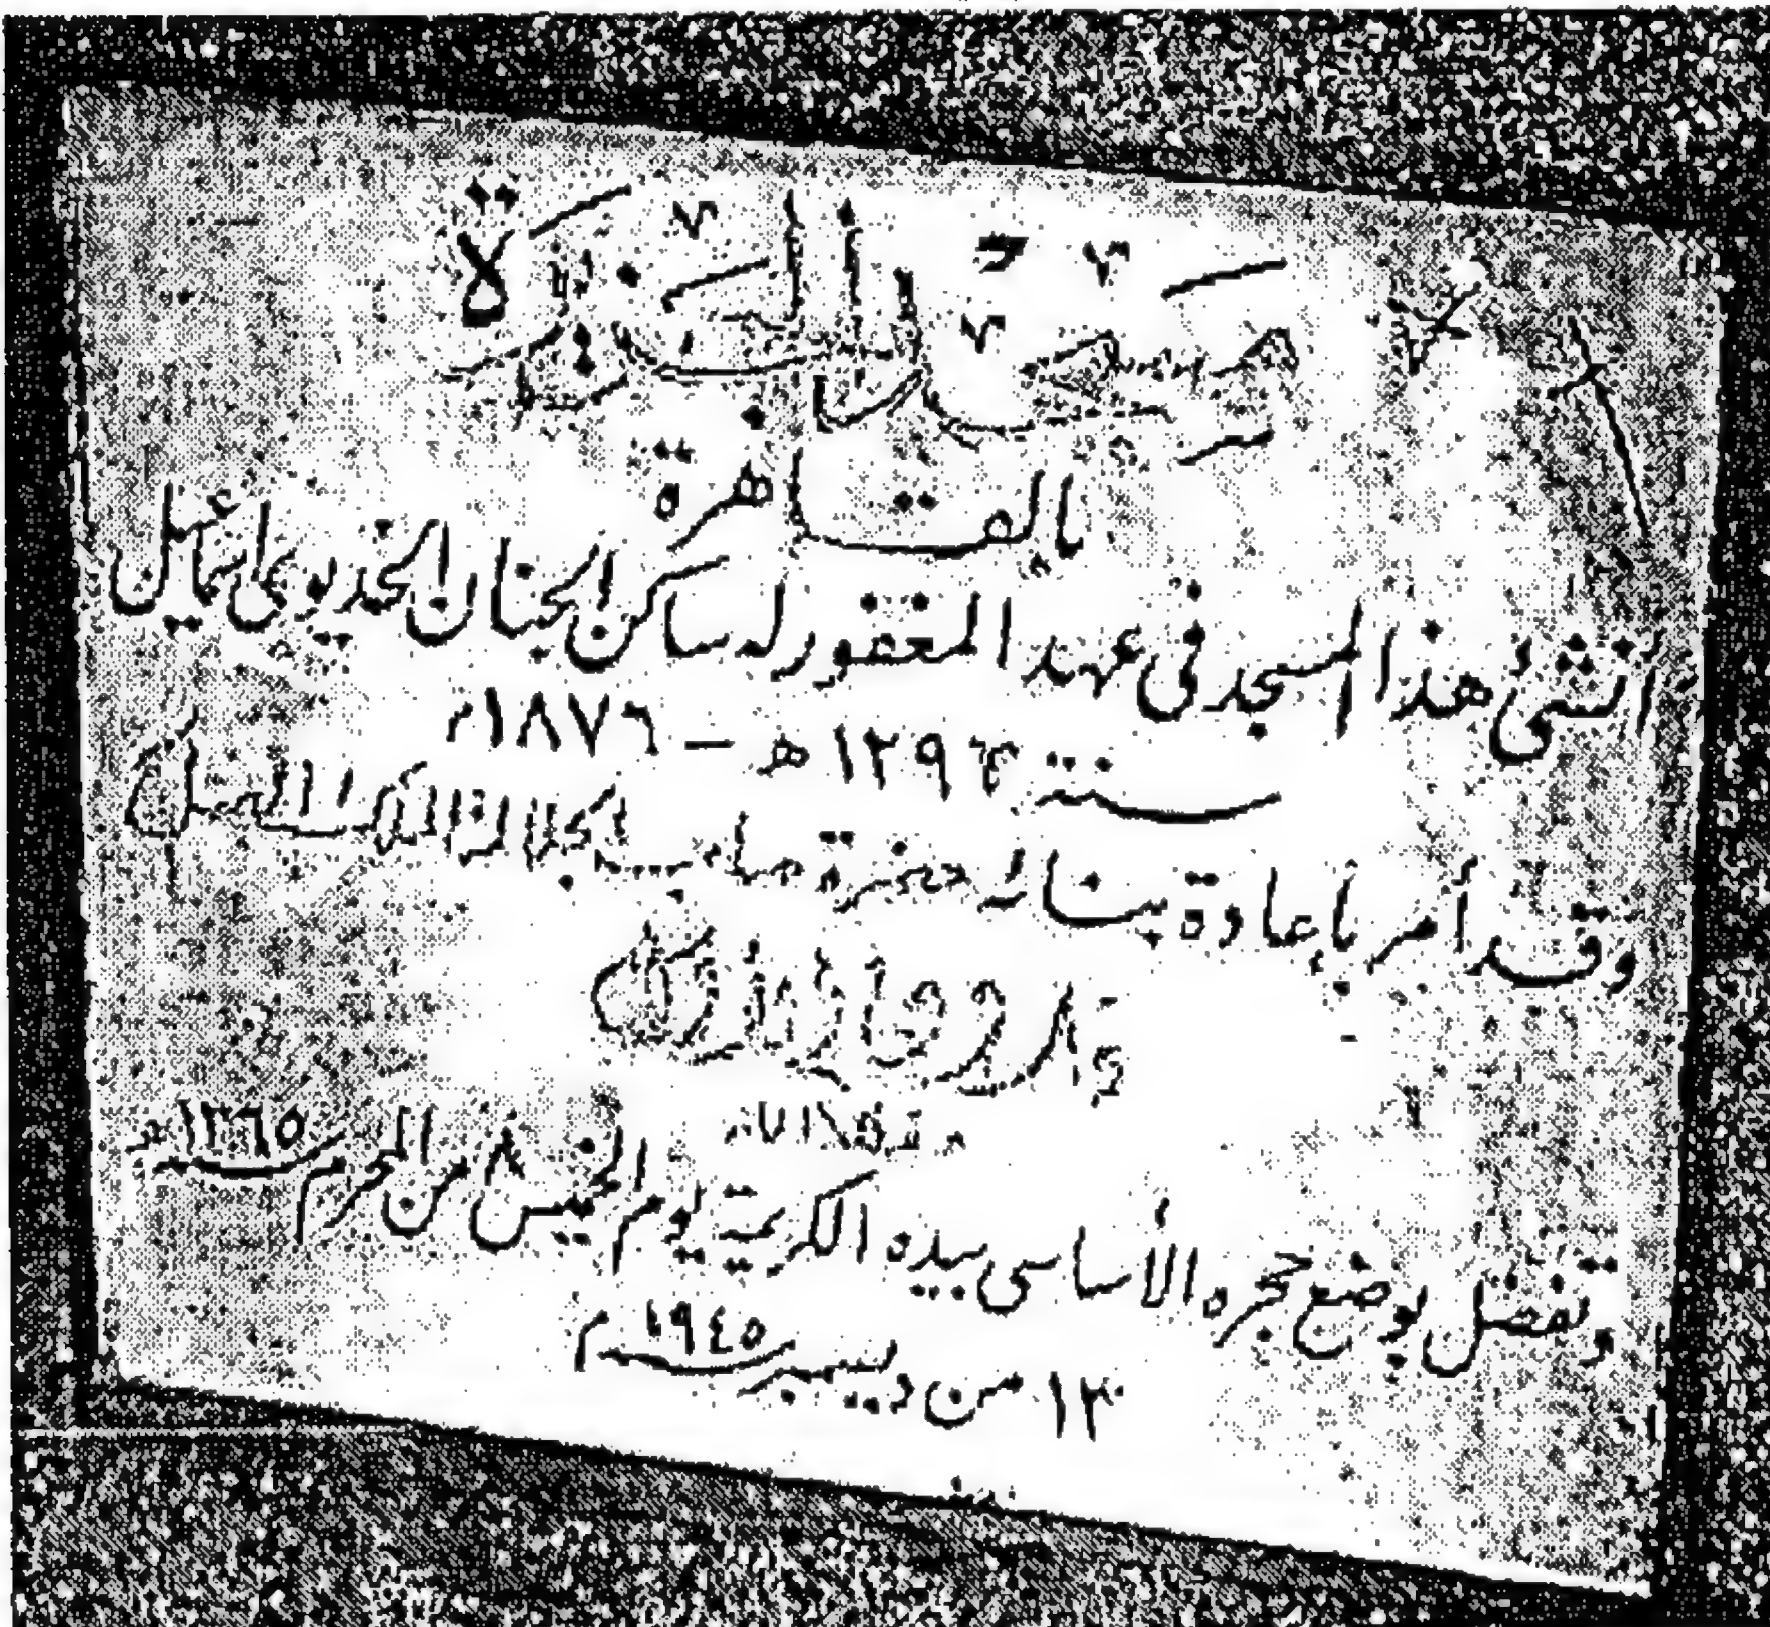 مسجد
بالقاهرة
أنشئ هذا المسجد فى عهد المغفور له ساكن الجنان الخديوى اسماعيل
سنة ١٢٩٣ هـ - ١٨٧٦ م
وقد أمر بإعادة بنائه حضرة صاحب الجلالة الملك الصالح
فاروق الأول
وتفضل بوضع حجره الأساسى بيده الكريمة يوم الخميس ٨ من المحرم ١٣٦٥ هـ
١٣ من ديسمبر ١٩٤٥ م